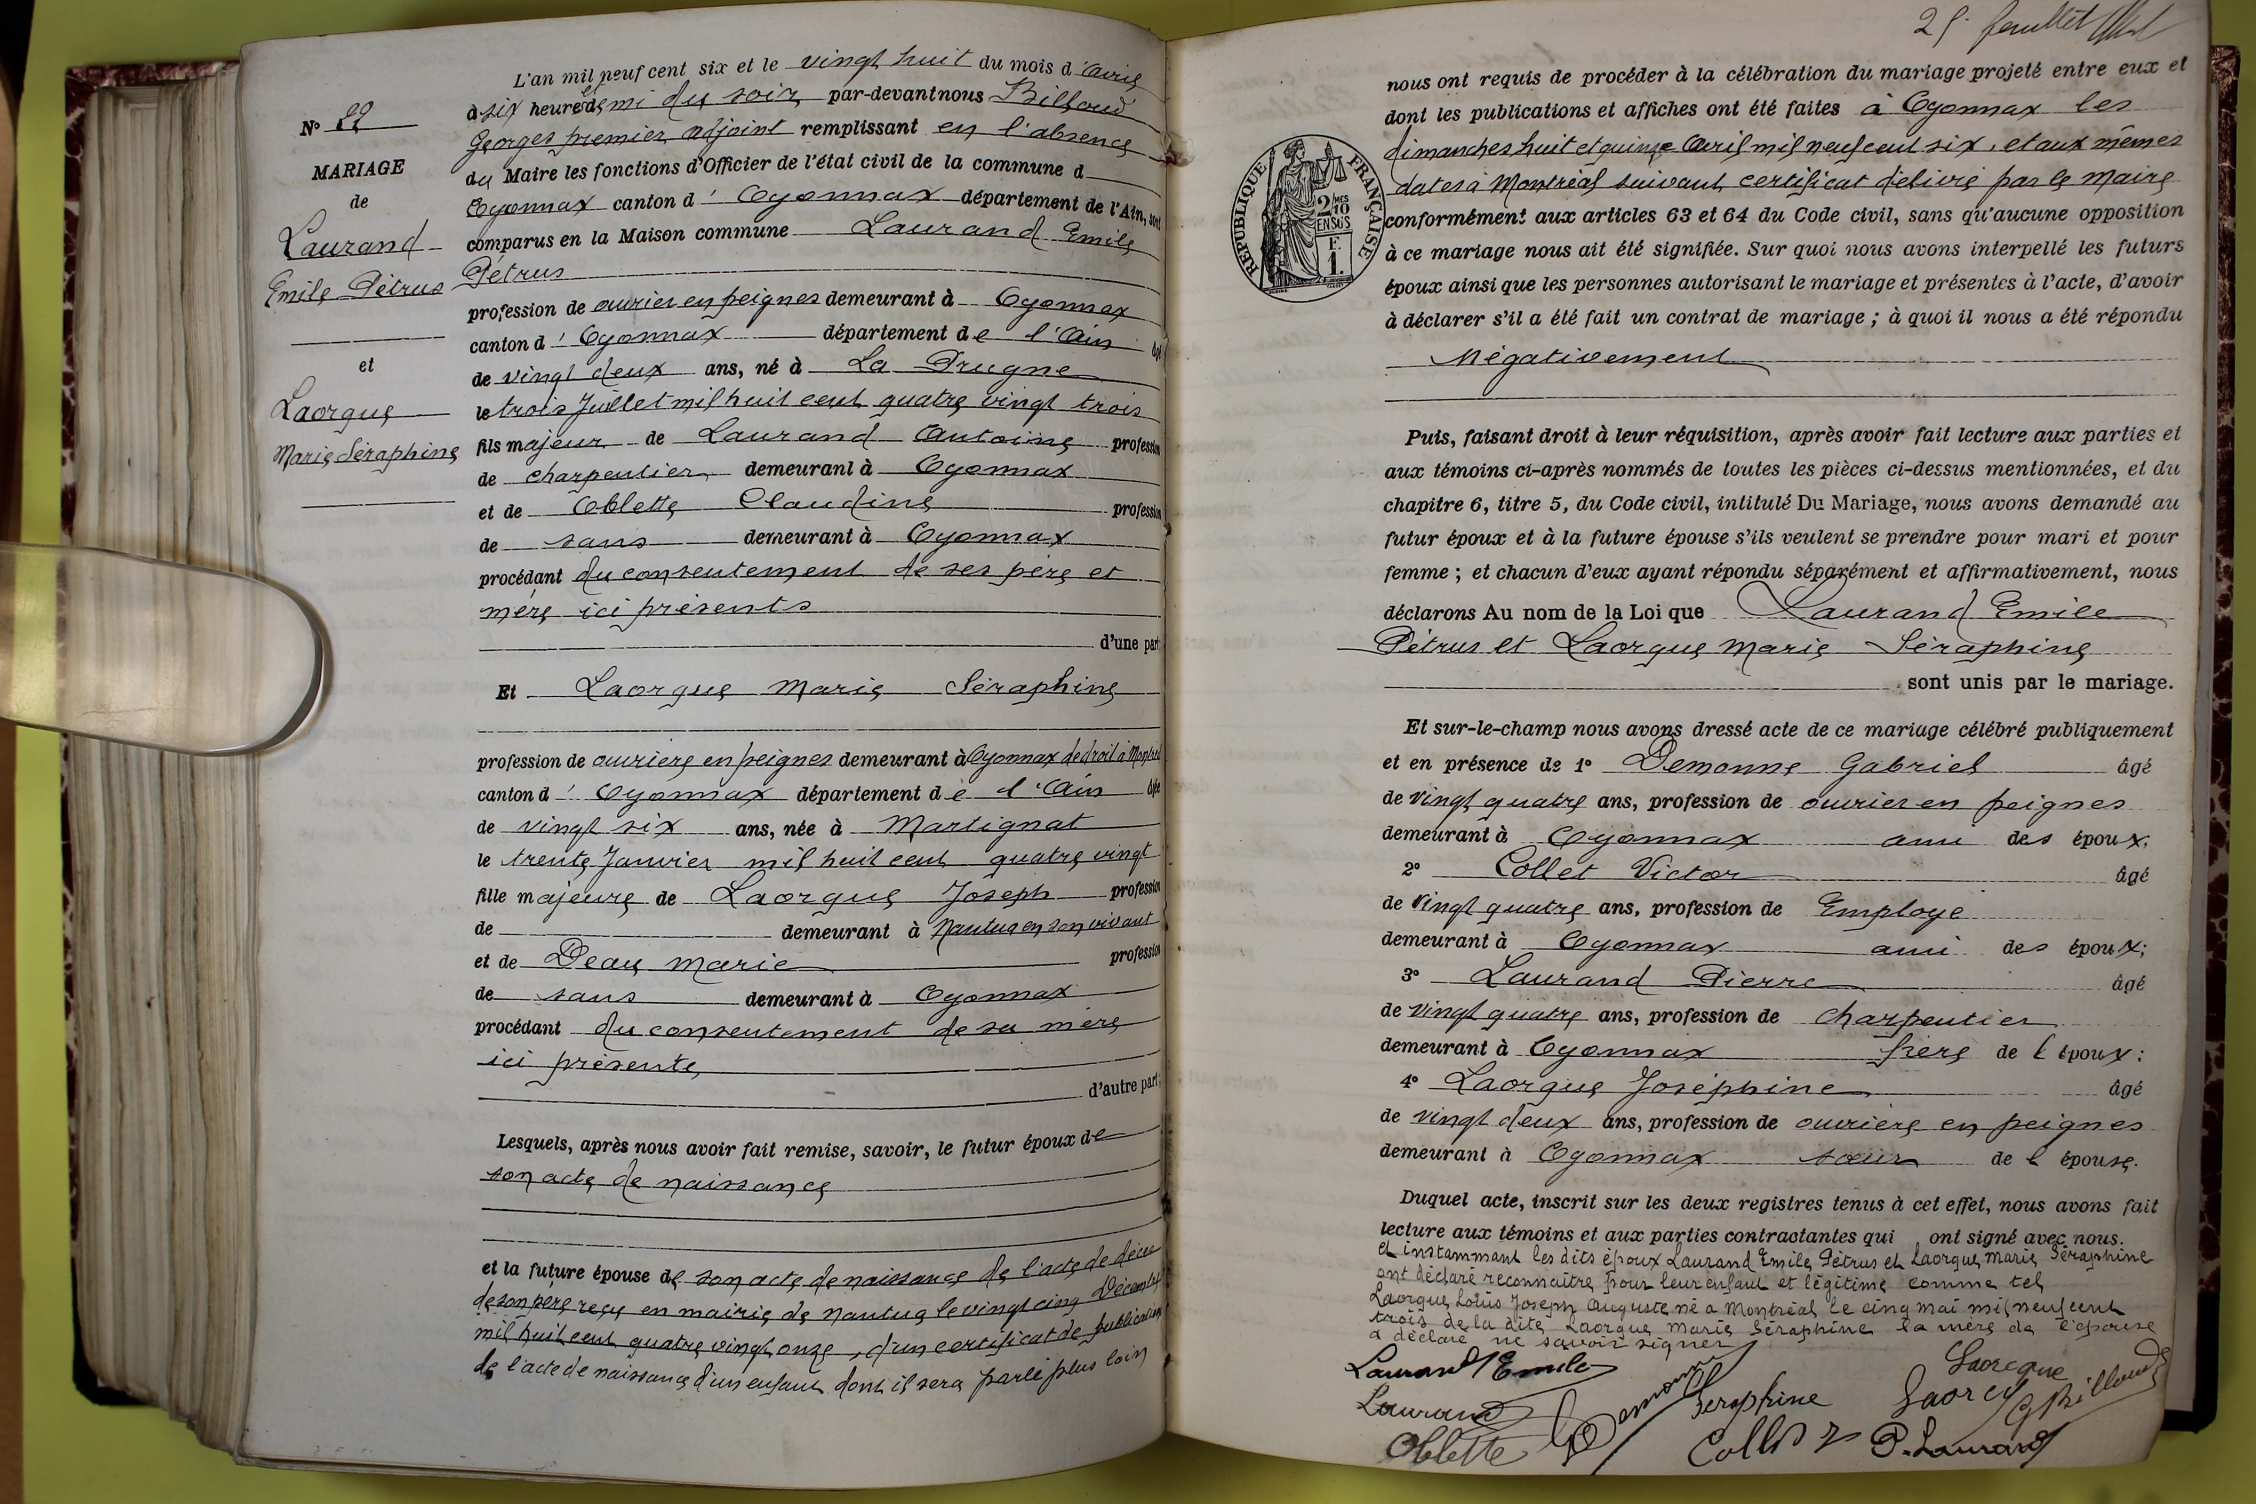 L'an mil neuf cent six et le vingt huit du mois d'Avril
à six heures et demi du soir par-devant nous Billoud
Georges premier adjoint remplissant en l'absence
du Maire les fonctions d'Officier de l'état civil de la commune d
Oyonnax canton d' Oyonnax département de l'Ain, sont
comparus en la Maison commune Laurand Emile
Pétrus
profession de ouvrier en peignes demeurant à Oyonnax
canton d' Oyonnax département de l'Ain âgé
de vingt deux ans, né à La Prugne
le trois Juillet mil huit cent quatre vingt trois
fils majeur de Laurand Antoine profession
de charpentier demeurant à Oyonnax
et de Oblette Claudine profession
de sans demeurant à Oyonnax
procédant du consentement de ses père et
mère ici présents
d'une part
Et Laorgue Marie Séraphine
profession de ouvrière en peignes demeurant à Oyonnax de droit à Montréal
canton d' Oyonnax département de l'Ain âgée
de vingt six ans, née à Martignat
le trente Janvier mil huit cent quatre vingt
fille majeure de Laorgue Joseph profession
de demeurant à Nantua en son vivant
et de Deau Marie profession
de sans demeurant à Oyonnax
procédant du consentement de sa mère
ici présente
d'autre part;
Lesquels, après nous avoir fait remise, savoir, le futur époux de
son acte de naissance
et la future épouse de son acte de naissance de l'acte de décès
de son père reçu en mairie de Nantua le vingt cinq Décembre
mil huit cent quatre vingt onze, d'un certificat de publication
de l'acte de naissance d'un enfant dont il sera parlé plus loin
N° 22
MARIAGE
de
Laurand
Emile Pétrus
et
Laorgue
Marie Séraphine
25. feuillet
nous ont requis de procéder à la célébration du mariage projeté entre eux et
dont les publications et affiches ont été faites à Oyonnax les
dimanches huit et quinze Avril mil neuf cent six, et aux mêmes
dates à Montréal suivant certificat délivré par le maire
conformément aux articles 63 et 64 du Code civil, sans qu'aucune opposition
à ce mariage nous ait été signifiée. Sur quoi nous avons interpellé les futurs
époux ainsi que les personnes autorisant le mariage et présentes à l'acte, d'avoir
à déclarer s'il a été fait un contrat de mariage; à quoi il nous a été répondu
Négativement
RÉPUBLIQUE FRANÇAISE
2/10 MES
EN SUS
F.
1.
Puis, faisant droit à leur réquisition, après avoir fait lecture aux parties et
aux témoins ci-après nommés de toutes les pièces ci-dessus mentionnées, et du
chapitre 6, titre 5, du Code civil, intitulé Du Mariage, nous avons demandé au
futur époux et à la future épouse s'ils veulent se prendre pour mari et pour
femme; et chacun d'eux ayant répondu séparément et affirmativement, nous
déclarons Au nom de la Loi que Laurand Emile
Pétrus et Laorgue Marie Séraphine
sont unis par le mariage.
Et sur-le-champ nous avons dressé acte de ce mariage célébré publiquement
et en présence de 1° Demonne Gabriel âgé
de vingt quatre ans, profession de ouvrier en peignes
demeurant à Oyonnax ami des époux;
2° Collet Victor âgé
de vingt quatre ans, profession de Employé
demeurant à Oyonnax ami des époux;
3° Laurand Pierre âgé
de vingt quatre ans, profession de charpentier
demeurant à Oyonnax frère de l'époux;
4° Laorgue Joséphine âgé
de vingt deux ans, profession de ouvrière en peignes
demeurant à Oyonnax soeur de l'épouse.
Duquel acte, inscrit sur les deux registres tenus à cet effet, nous avons fait
lecture aux témoins et aux parties contractantes qui ont signé avec nous.
et instamment les dits époux Laurand Emile Pétrus et Laorgue Marie Séraphine
ont déclaré reconnaître pour leur enfant et légitime comme tel
Laorgue Loüis Joseph Auguste né a Montréal le cinq mai mil neuf cent
trois de la dite Laorgue Marie Séraphine la mère de l'épouse
a déclaré ne savoir signer
Laurand Emile
Laorgue
Laurand
Demonne
Seraphine
G Billoud
Oblette
Collet
P. Laurand